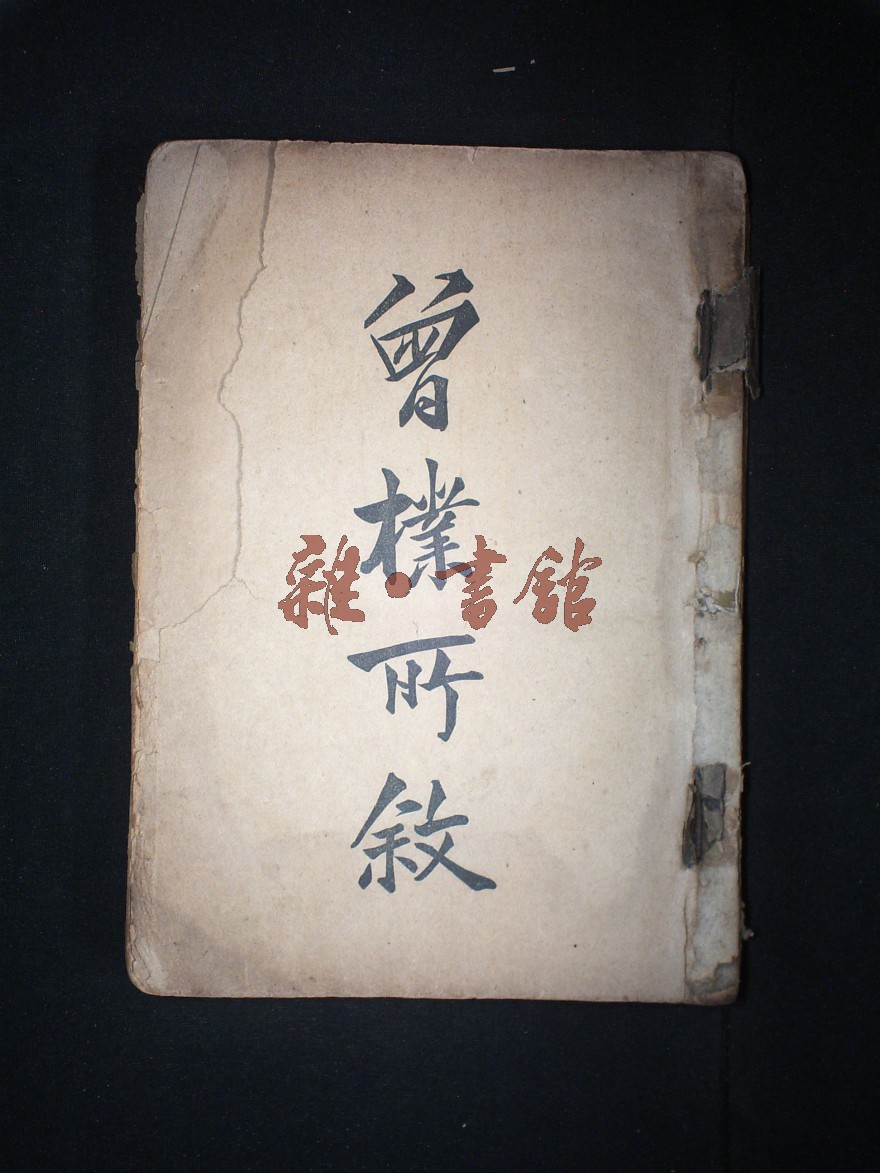 曾樸所敘
雜·書館